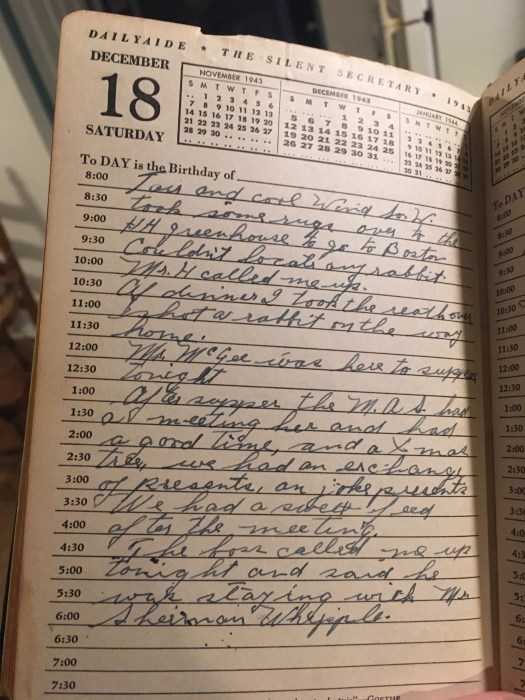 DAILYAIDE * THE SILENT SECRETARY * 1943
DECEMBER
18
SATURDAY
NOVEMBER 1943
S M T W T F S
.. 1 2 3 4 5 6
7 8 9 10 11 12 13
14 15 16 17 18 19 20
21 22 23 24 25 26 27
28 29 30 .. .. .. ..
DECEMBER 1943
S M T W T F S
1 2 3 4
5 6 7 8 9 10 11
12 13 14 15 16 17 18
19 20 21 22 23 24 25
26 27 28 29 30 31 ..
JANUARY 1944
S M T W T F S
To DAY is the Birthday of
8:00 Fair and cool Wind So. W.
8:30 took some rugs over to the
9:00 HH greenhouse to go to Boston
9:30 Couldn't locate any rabbit.
10:00 Mr. H called me up.
10:30 Af dinner I took the
11:00 I shot a rabbit on the way
11:30 home.
12:00 Mr. McGee was here to supper
12:30 tonight
1:00 After supper the M.A.S. had
1:30 a meeting her and had
2:00 a good time, and a X mas
2:30 tree, we had an exchang
3:00 of presents, an joke presents
3:30 We had a sweet feed
4:00 after the meeting.
4:30 The boss called me up
5:00 tonight and said he
5:30 was staying with Mr
6:00 Sherman Whipple.
6:30
7:00
7:30
GOETHE